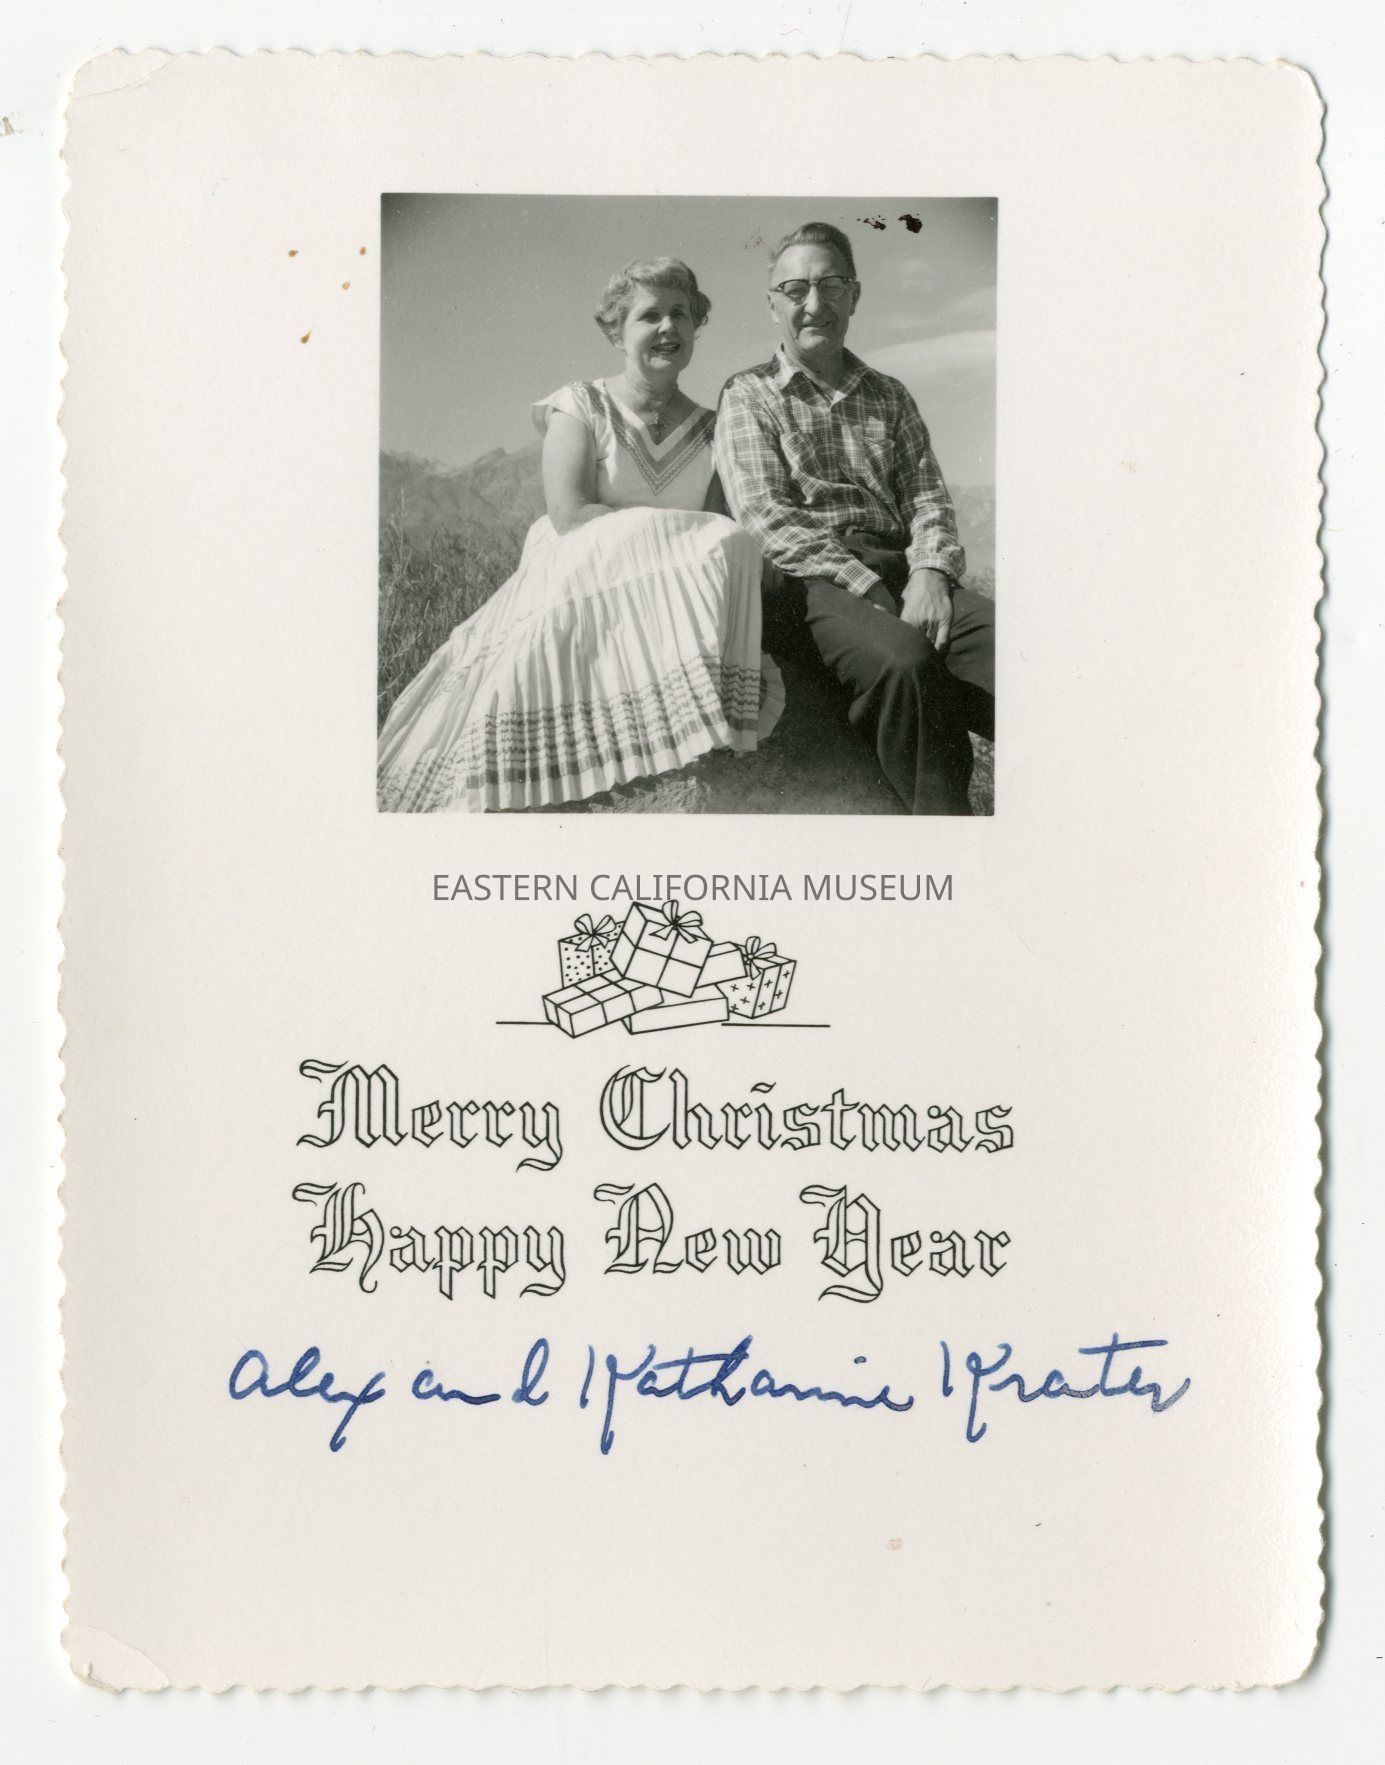 EASTERN CALIFORNIA MUSEUM
Merry Christmas
Happy New Year
Alex and Katharine Krater